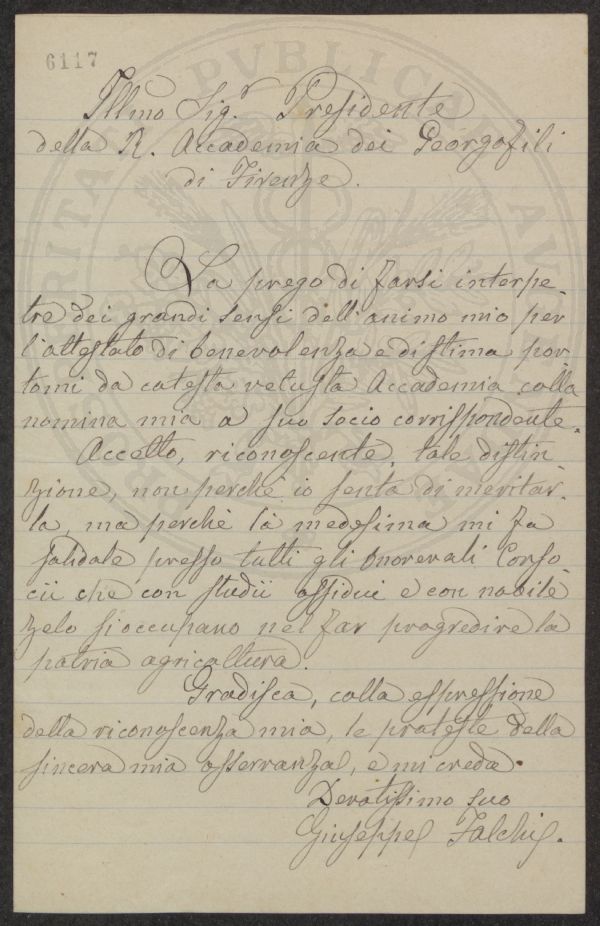 6117
PVBLICA
Illmo Sig.r Presidente
della R. Accademia dei Georgofili
di Firenze.
La prego di farsi interpe-
tre dei grandi sensi dell'animo mio per
l'attestato di benevolenza e di stima por-
tomi da catesta vetusta Accademia colla
nomina mia a suo socio corrispondente.
Accetto, riconoscente, tale distin
zione, non perchè io senta di meritar-
la, ma perchè la medesima mi fa
solidale presso tutti gli onorevoli Conso
cii che con studii assidui e con nobile
zelo si occupano nel far progredire la
patria agricoltura.
Gradisca, colla espressione
della riconoscenza mia, le proteste della
sincera mia osservanza, e mi creda.
Devotissimo suo
Giuseppe Falchi.